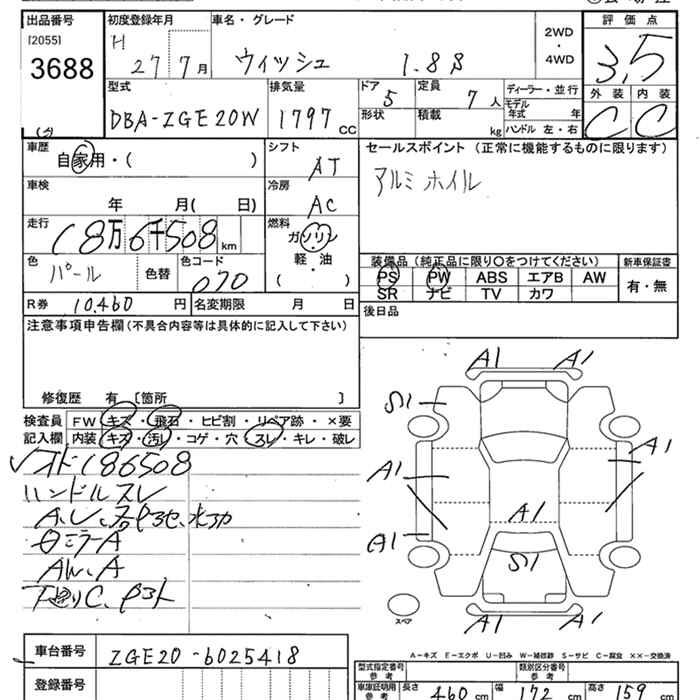 出品番号 初度登録年月 車名・グレード 評価点
[2055] H
3688 27 7月 ウィッシュ 1.8S 2WD・4WD 3.5
外装 内装
C C
型式 排気量 ドア 定員 ディーラー・並行
DBA-ZGE20W 1797cc 5 7人 モデル年式 年
形状 積載 kg ハンドル 左・右
車歴 シフト セールスポイント (正常に機能するものに限ります)
自家用・( ) AT アルミホイル
車検 冷房
年 月( 日) AC
走行 燃料
18万6千508km ガソリン
軽・油
( ・ )
色 色替 色コード 装備品 (純正品に限り○をつけてください) 新車保証書
パール 070 PS PW ABS エアB AW 有・無
SR ナビ TV カワ
R券 10,460円 名変期限 月 日 後日品
注意事項申告欄(不具合内容等は具体的に記入して下さい)
修復歴 有 [箇所 ]
検査員 FW キズ・飛石・ヒビ割・リペア跡・×要
記入欄 内装 キズ・汚レ・コゲ・穴・スレ・キレ・破レ
186508
ハンドルスレ
AW、A
A1 A1
S1
A1 A1
A1 A1
S1
A1 A1
スペア
A-キズ E-エクボ U-凹み W-補修跡 S-サビ C-腐食 XX-交換済
車台番号 ZGE20-6025418
登録番号
型式指定番号 参考 類別区分番号 参考
車庫証明用 参考 長さ 460cm 幅 172cm 高さ 159cm